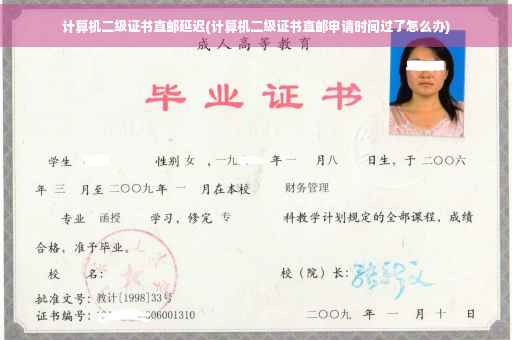 计算机二级证书直邮延迟(计算机二级证书直邮申请时间过了怎么办)
成人高等教育
毕业证书
学生 性别 女 ，一九 年一 月八 日生，于二〇〇六
年 三 月至二〇〇九年 一 月在本校 财务管理
专业 函授 学习，修完 专 科教学计划规定的全部课程，成绩
合格，准予毕业。
校 名： 校（院）长：
批准文号：教计[1998]33号
证书编号： 06001310 二〇〇九 年 一 月 十 日